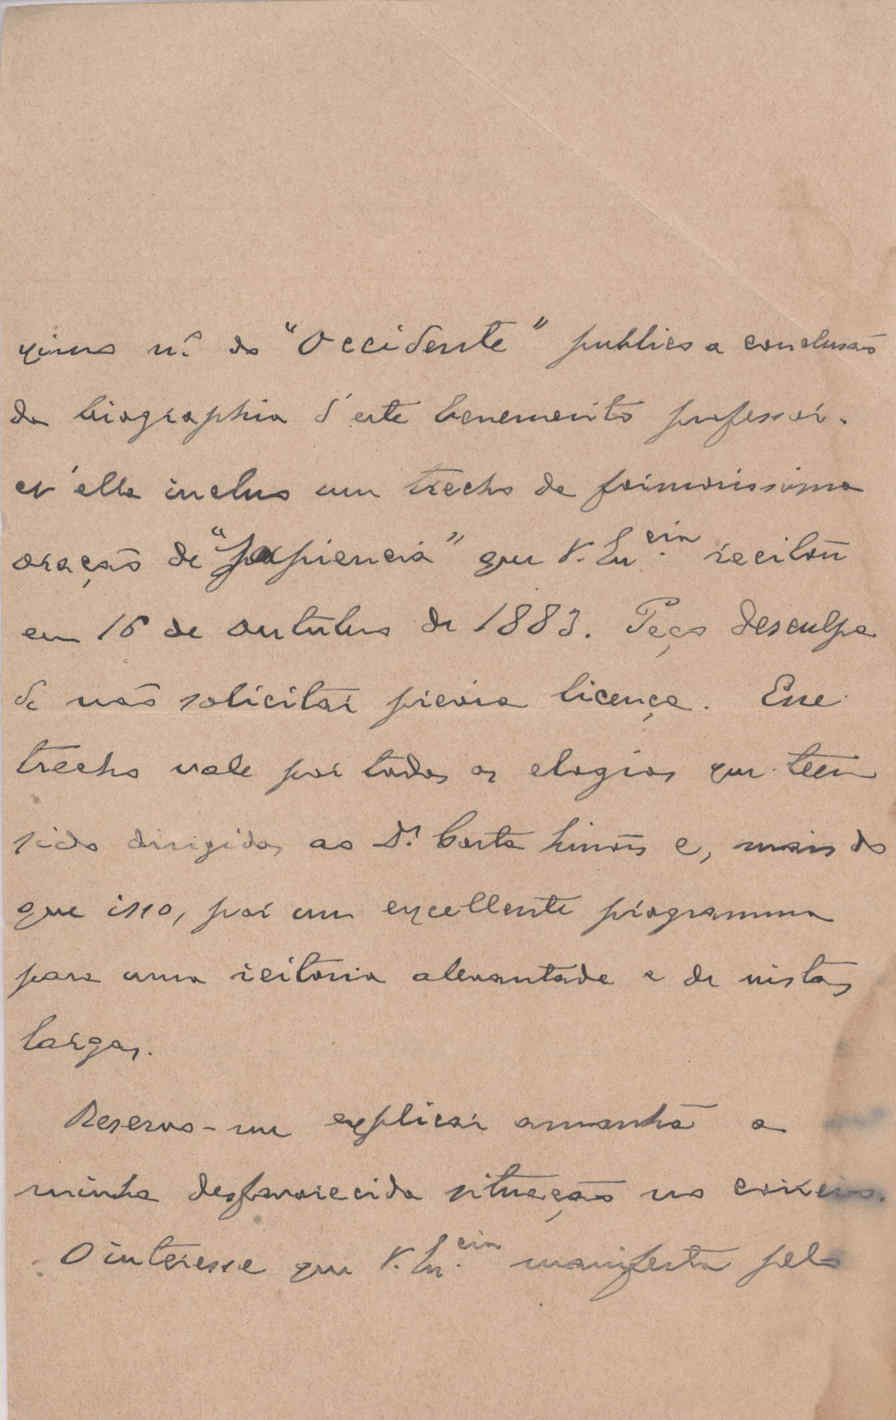 ximo n.º do "Occidente" publico a conclusão
da biographia d'este benemerito professor.
N'ella incluo um trecho da primorissima
oração de "Sapiencia" que V. Ex.cia recitou
em 16 de outubro de 1883. Peço desculpa
de não solicitar previa licença. Esse
trecho vale por todos os elogios que teem
sido dirigidos ao Dr. Costa Simões e, mais do
que isso, por um excellente programma
para uma reitoria alevantada e de vistas
largas.
Reservo-me explicar amanhã a
minha desfavorecida situação no correio.
O interesse que V. Ex.cia manifesta pelo